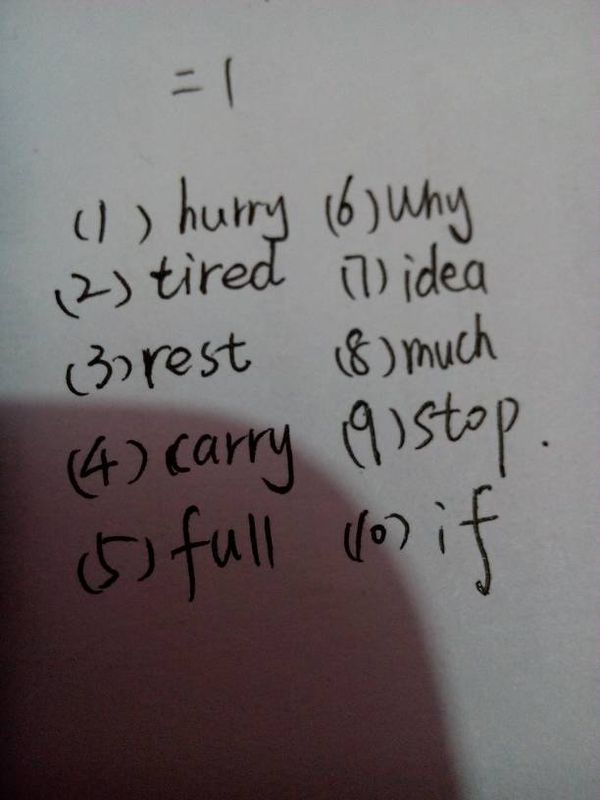 =1
(1) hurry (6) why
(2) tired (7) idea
(3) rest (8) much
(4) carry (9) stop.
(5) full (10) if